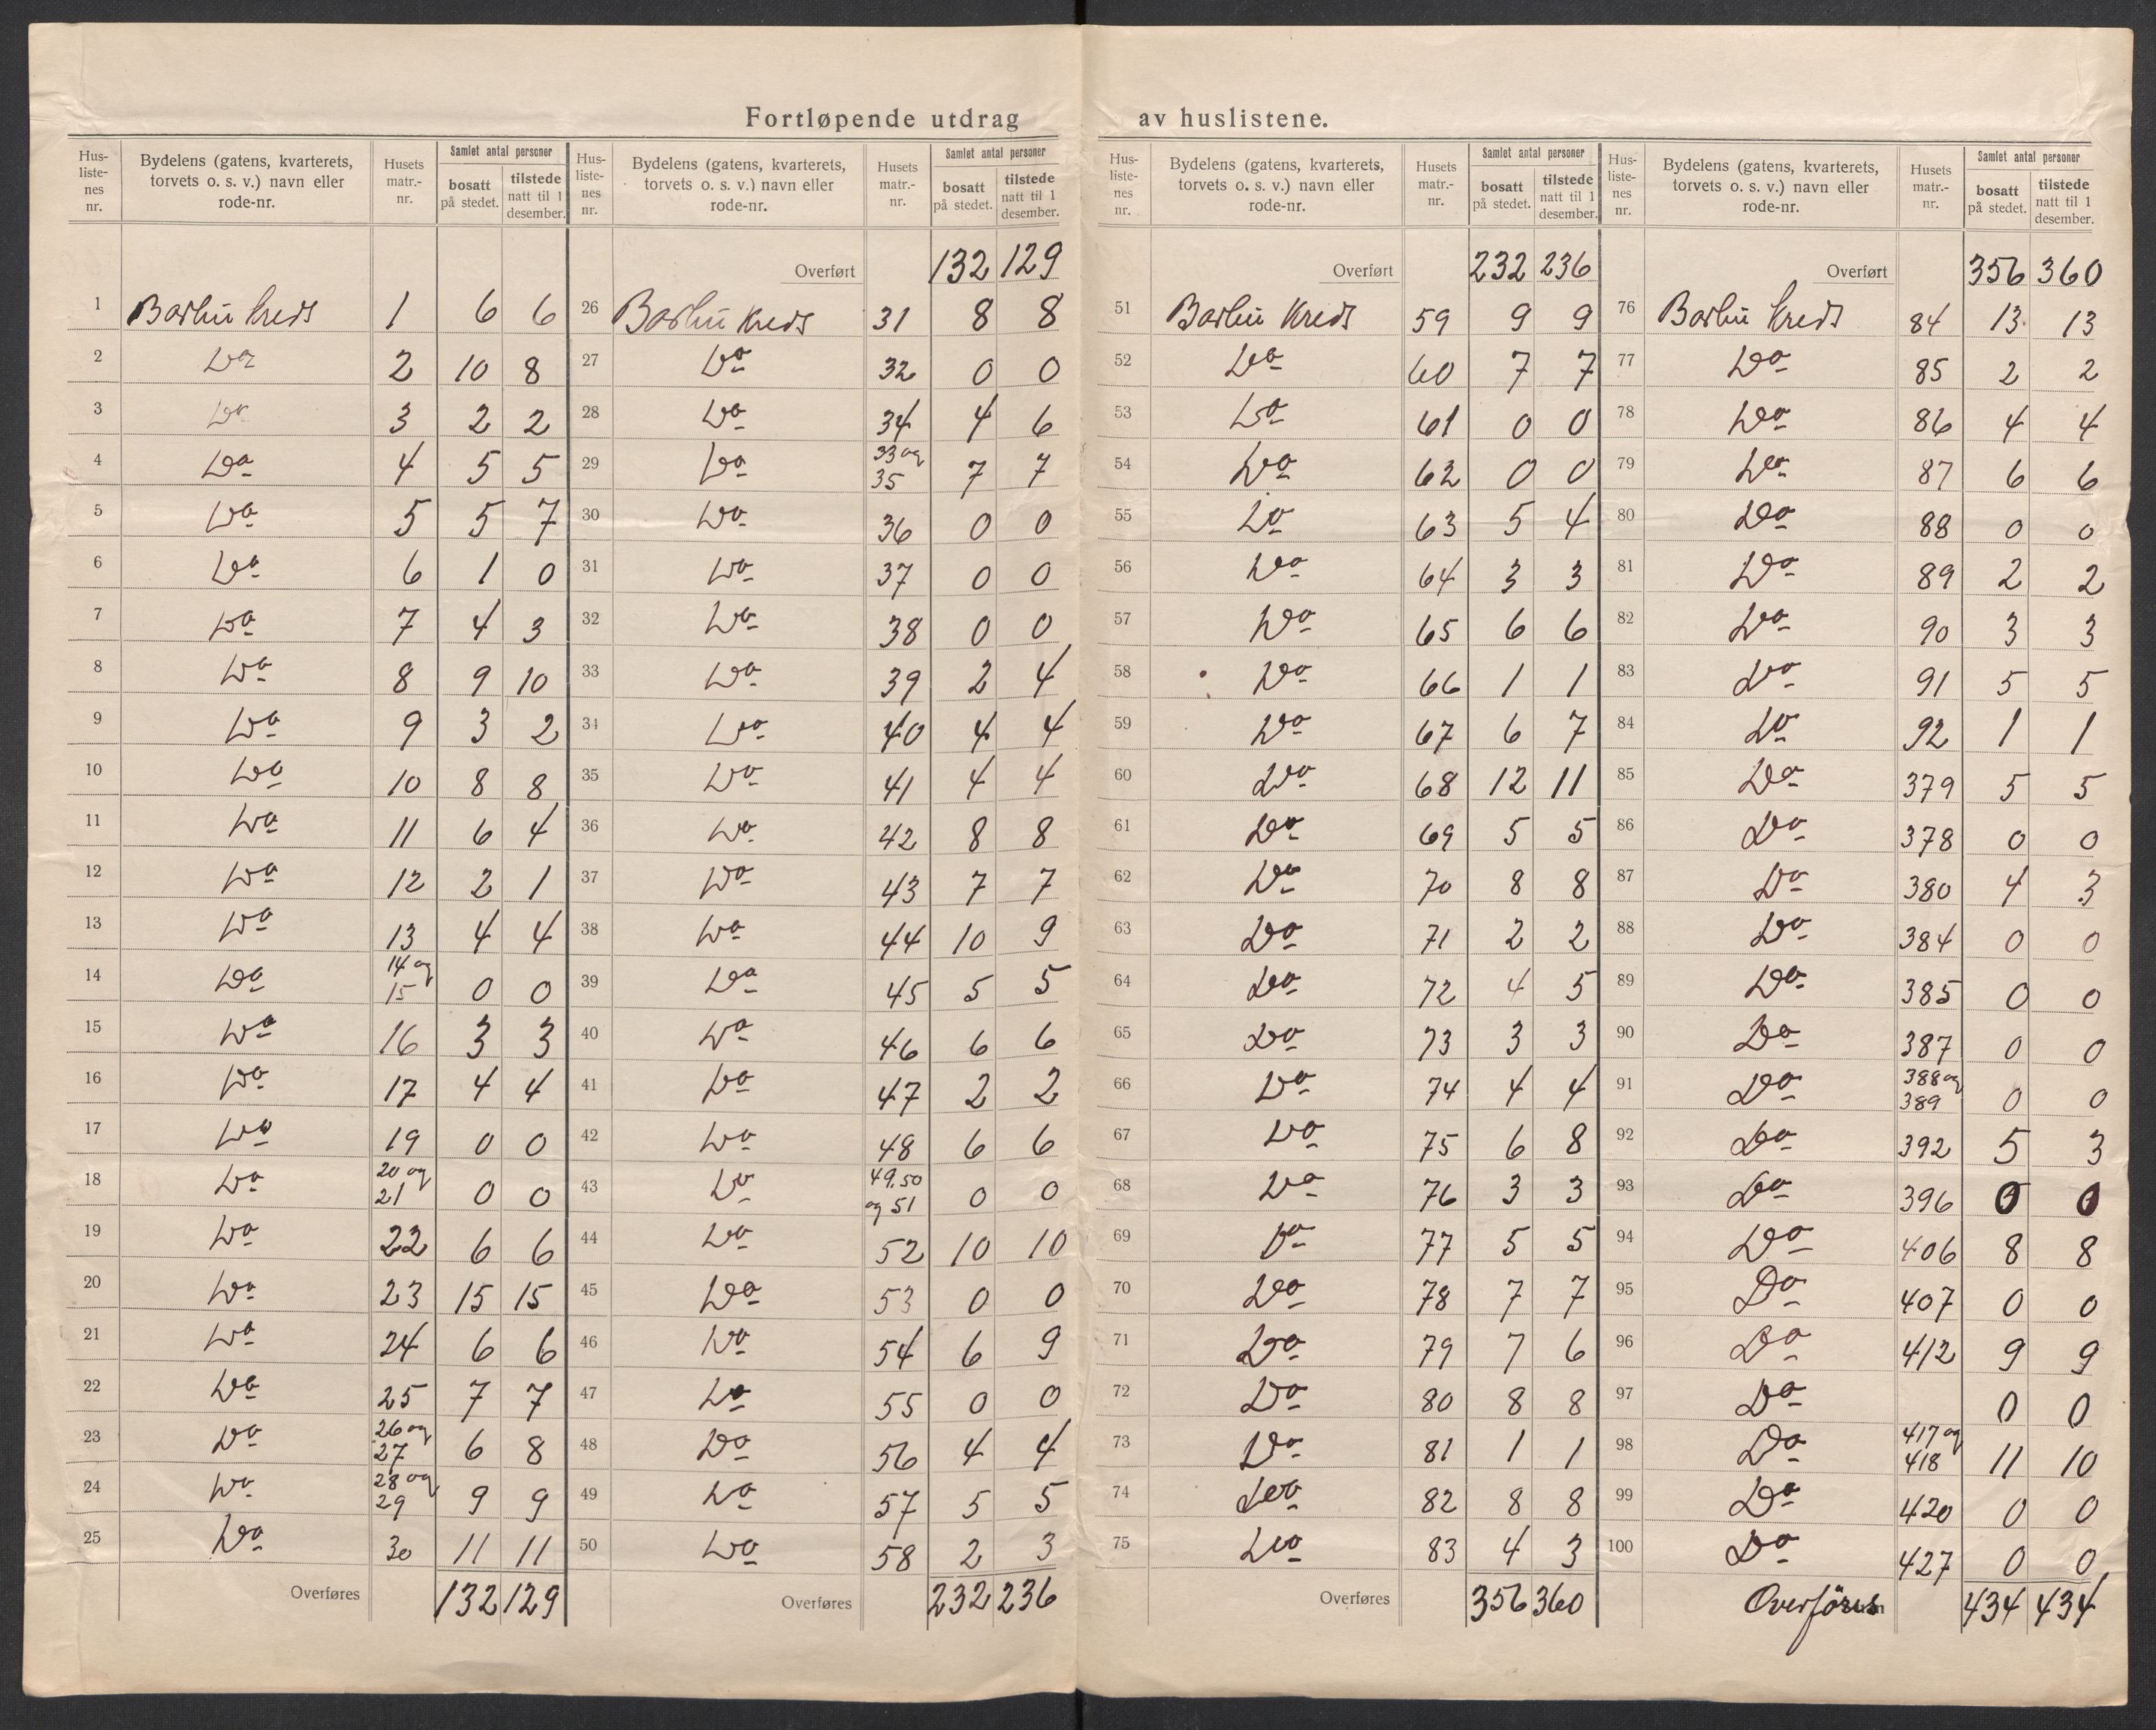 Fortløpende utdrag av huslistene.
Hus-liste-nes nr. | Bydelens (gatens, kvarterets, torvets o. s. v.) navn eller rode-nr. | Husets matr.-nr. | Samlet antal personer bosatt på stedet. | tilstede natt til 1 desember.
1 Barbu Kreds 1 6 6
2 Do 2 10 8
3 Do 3 2 2
4 Do 4 5 5
5 Do 5 5 7
6 Do 6 1 0
7 Do 7 4 3
8 Do 8 9 10
9 Do 9 3 2
10 Do 10 8 8
11 Do 11 6 4
12 Do 12 2 1
13 Do 13 4 4
14 Do 14 og 15 0 0
15 Do 16 3 3
16 Do 17 4 4
17 Do 19 0 0
18 Do 20 og 21 0 0
19 Do 22 6 6
20 Do 23 15 15
21 Do 24 6 6
22 Do 25 7 7
23 Do 26 og 27 6 8
24 Do 28 og 29 9 9
25 Do 30 11 11
Overføres 132 129
Hus-liste-nes nr. | Bydelens (gatens, kvarterets, torvets o. s. v.) navn eller rode-nr. | Husets matr.-nr. | Samlet antal personer bosatt på stedet. | tilstede natt til 1 desember.
Overført 132 129
26 Barbu Kreds 31 8 8
27 Do 32 0 0
28 Do 34 4 6
29 Do 33 og 35 7 7
30 Do 36 0 0
31 Do 37 0 0
32 Do 38 0 0
33 Do 39 2 4
34 Do 40 4 4
35 Do 41 4 4
36 Do 42 8 8
37 Do 43 7 7
38 Do 44 10 9
39 Do 45 5 5
40 Do 46 6 6
41 Do 47 2 2
42 Do 48 6 6
43 Do 49, 50 og 51 0 0
44 Do 52 10 10
45 Do 53 0 0
46 Do 54 6 9
47 Do 55 0 0
48 Do 56 4 4
49 Do 57 5 5
50 Do 58 2 3
Overføres 232 236
Hus-liste-nes nr. | Bydelens (gatens, kvarterets, torvets o. s. v.) navn eller rode-nr. | Husets matr.-nr. | Samlet antal personer bosatt på stedet. | tilstede natt til 1 desember.
Overført 232 236
51 Barbu Kreds 59 9 9
52 Do 60 7 7
53 Do 61 0 0
54 Do 62 0 0
55 Do 63 5 4
56 Do 64 3 3
57 Do 65 6 6
58 Do 66 1 1
59 Do 67 6 7
60 Do 68 12 11
61 Do 69 5 5
62 Do 70 8 8
63 Do 71 2 2
64 Do 72 4 5
65 Do 73 3 3
66 Do 74 4 4
67 Do 75 6 8
68 Do 76 3 3
69 Do 77 5 5
70 Do 78 7 7
71 Do 79 7 6
72 Do 80 8 8
73 Do 81 1 1
74 Do 82 8 8
75 Do 83 4 3
Overføres 356 360
Hus-liste-nes nr. | Bydelens (gatens, kvarterets, torvets o. s. v.) navn eller rode-nr. | Husets matr.-nr. | Samlet antal personer bosatt på stedet. | tilstede natt til 1 desember.
Overført 356 360
76 Barbu Kreds 84 13 13
77 Do 85 2 2
78 Do 86 4 4
79 Do 87 6 6
80 Do 88 0 0
81 Do 89 2 2
82 Do 90 3 3
83 Do 91 5 5
84 Do 92 1 1
85 Do 379 5 5
86 Do 378 0 0
87 Do 380 4 3
88 Do 384 0 0
89 Do 385 0 0
90 Do 387 0 0
91 Do 388 og 389 0 0
92 Do 392 5 3
93 Do 396 0 0
94 Do 406 8 8
95 Do 407 0 0
96 Do 412 9 9
97 Do 0 0
98 Do 417 og 418 11 10
99 Do 420 0 0
100 Do 427 0 0
Overföres 434 434